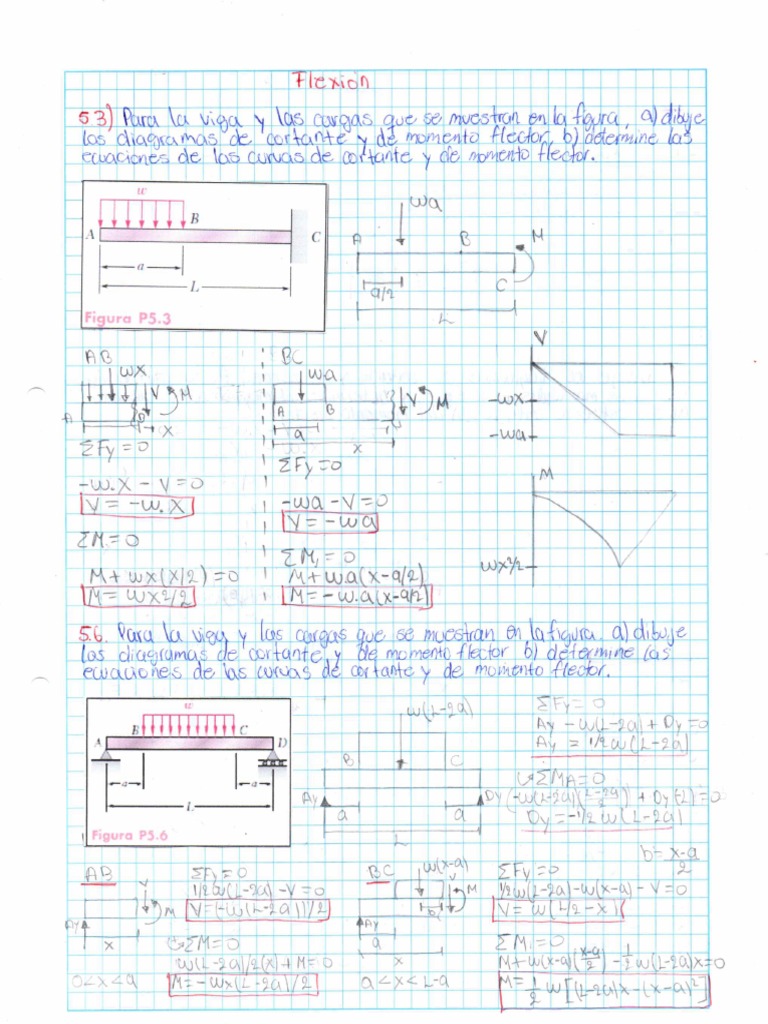 Flexion
5.3) Para la viga y las cargas que se muestran en la figura, a) dibuje
los diagramas de cortante y de momento flector, b) determine las
ecuaciones de las curvas de cortante y de momento flector.
w
B
A
C
a
L
Figura P5.3
wa
A
B
M
C
a/2
L
AB
wx
V
M
A
x
ΣFy = 0
-w.x - V = 0
V = -w.x
ΣM = 0
M + wx(x/2) = 0
M = wx2/2
BC
wa
A
B
V
M
a
x
ΣFy = 0
-wa - V = 0
V = -wa
ΣM1 = 0
M + w.a(x-a/2)
M = -w.a(x-a/2)
V
-wx
-wa
M
wx2/2
5.6. Para la viga y las cargas que se muestran en la figura. a) dibuje
los diagramas de cortante y de momento flector b) determine las
ecuaciones de las curvas de cortante y de momento flector.
w
B
C
A
D
a
a
L
Figura P5.6
w(L-2a)
B
C
Ay
Dy
a
a
L
ΣFy = 0
Ay - w(L-2a) + Dy = 0
Ay = 1/2 w(L-2a)
ΣMA = 0
(-w(L-2a)(L-2a)/2 + Dy(-L) = 0
Dy = -1/2 w(L-2a)
b = x-a/2
AB
V
M
Ay
x
0<x<a
ΣFy = 0
1/2 w(L-2a) - V = 0
V = (-w(L-2a))/2
ΣM = 0
w(L-2a)/2(x) + M = 0
M = -wx(L-2a)/2
BC
w(x-a)
V
M
Ay
a
x
a<x<L-a
ΣFy = 0
1/2w(L-2a) - w(x-a) - V = 0
V = w(L/2 - x)
ΣM1 = 0
M + w(x-a)(x-a/2) - 1/2 w(L-2a)x = 0
M = 1/2 w[(L-2a)x - (x-a)2]